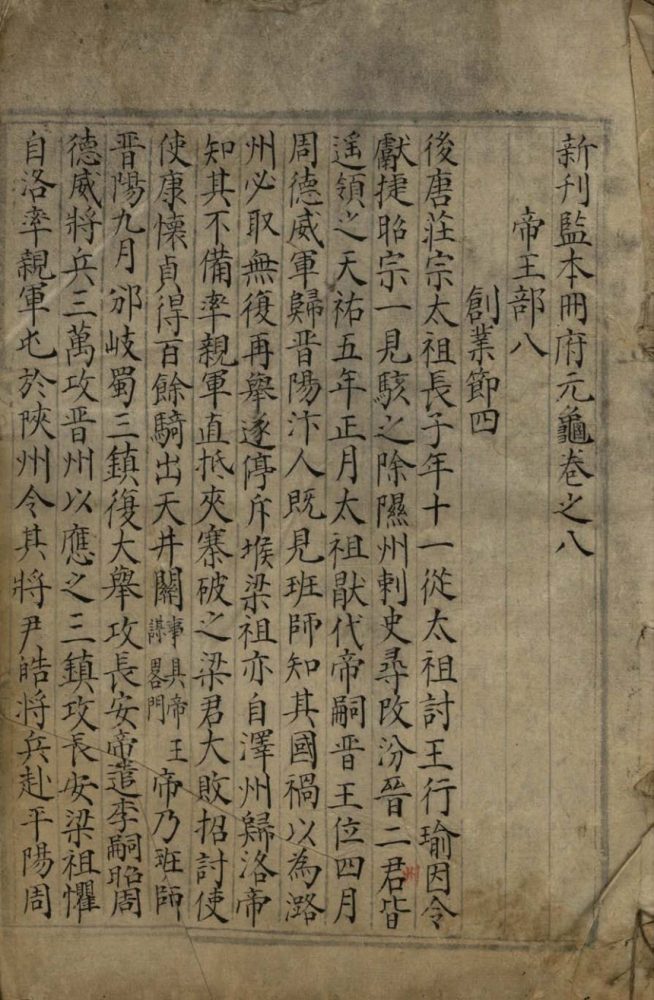 新刋監本冊府元龜卷之八
帝王部八
創業節四
後唐莊宗太祖長子年十一從太祖討王行瑜因令
獻捷昭宗一見駭之除隰州刺史尋改汾晉二君皆
遥領之天祐五年正月太祖猒代帝嗣晋王位四月
周德威軍歸晋陽汴人既見班師知其國禍以為潞
州必取無復再舉遂停斥堠梁祖亦自澤州歸洛帝
知其不備率親軍直抵夾寨破之梁君大敗招討使
使康懷貞得百餘騎出天井關事具帝王謀畧門帝乃班師
晋陽九月邠岐蜀三鎮復大舉攻長安帝遣李嗣昭周
德威將兵三萬攻晋州以應之三鎮攻長安梁祖懼
自洛率親軍屯於陜州令其將尹皓將兵赴平陽周
州